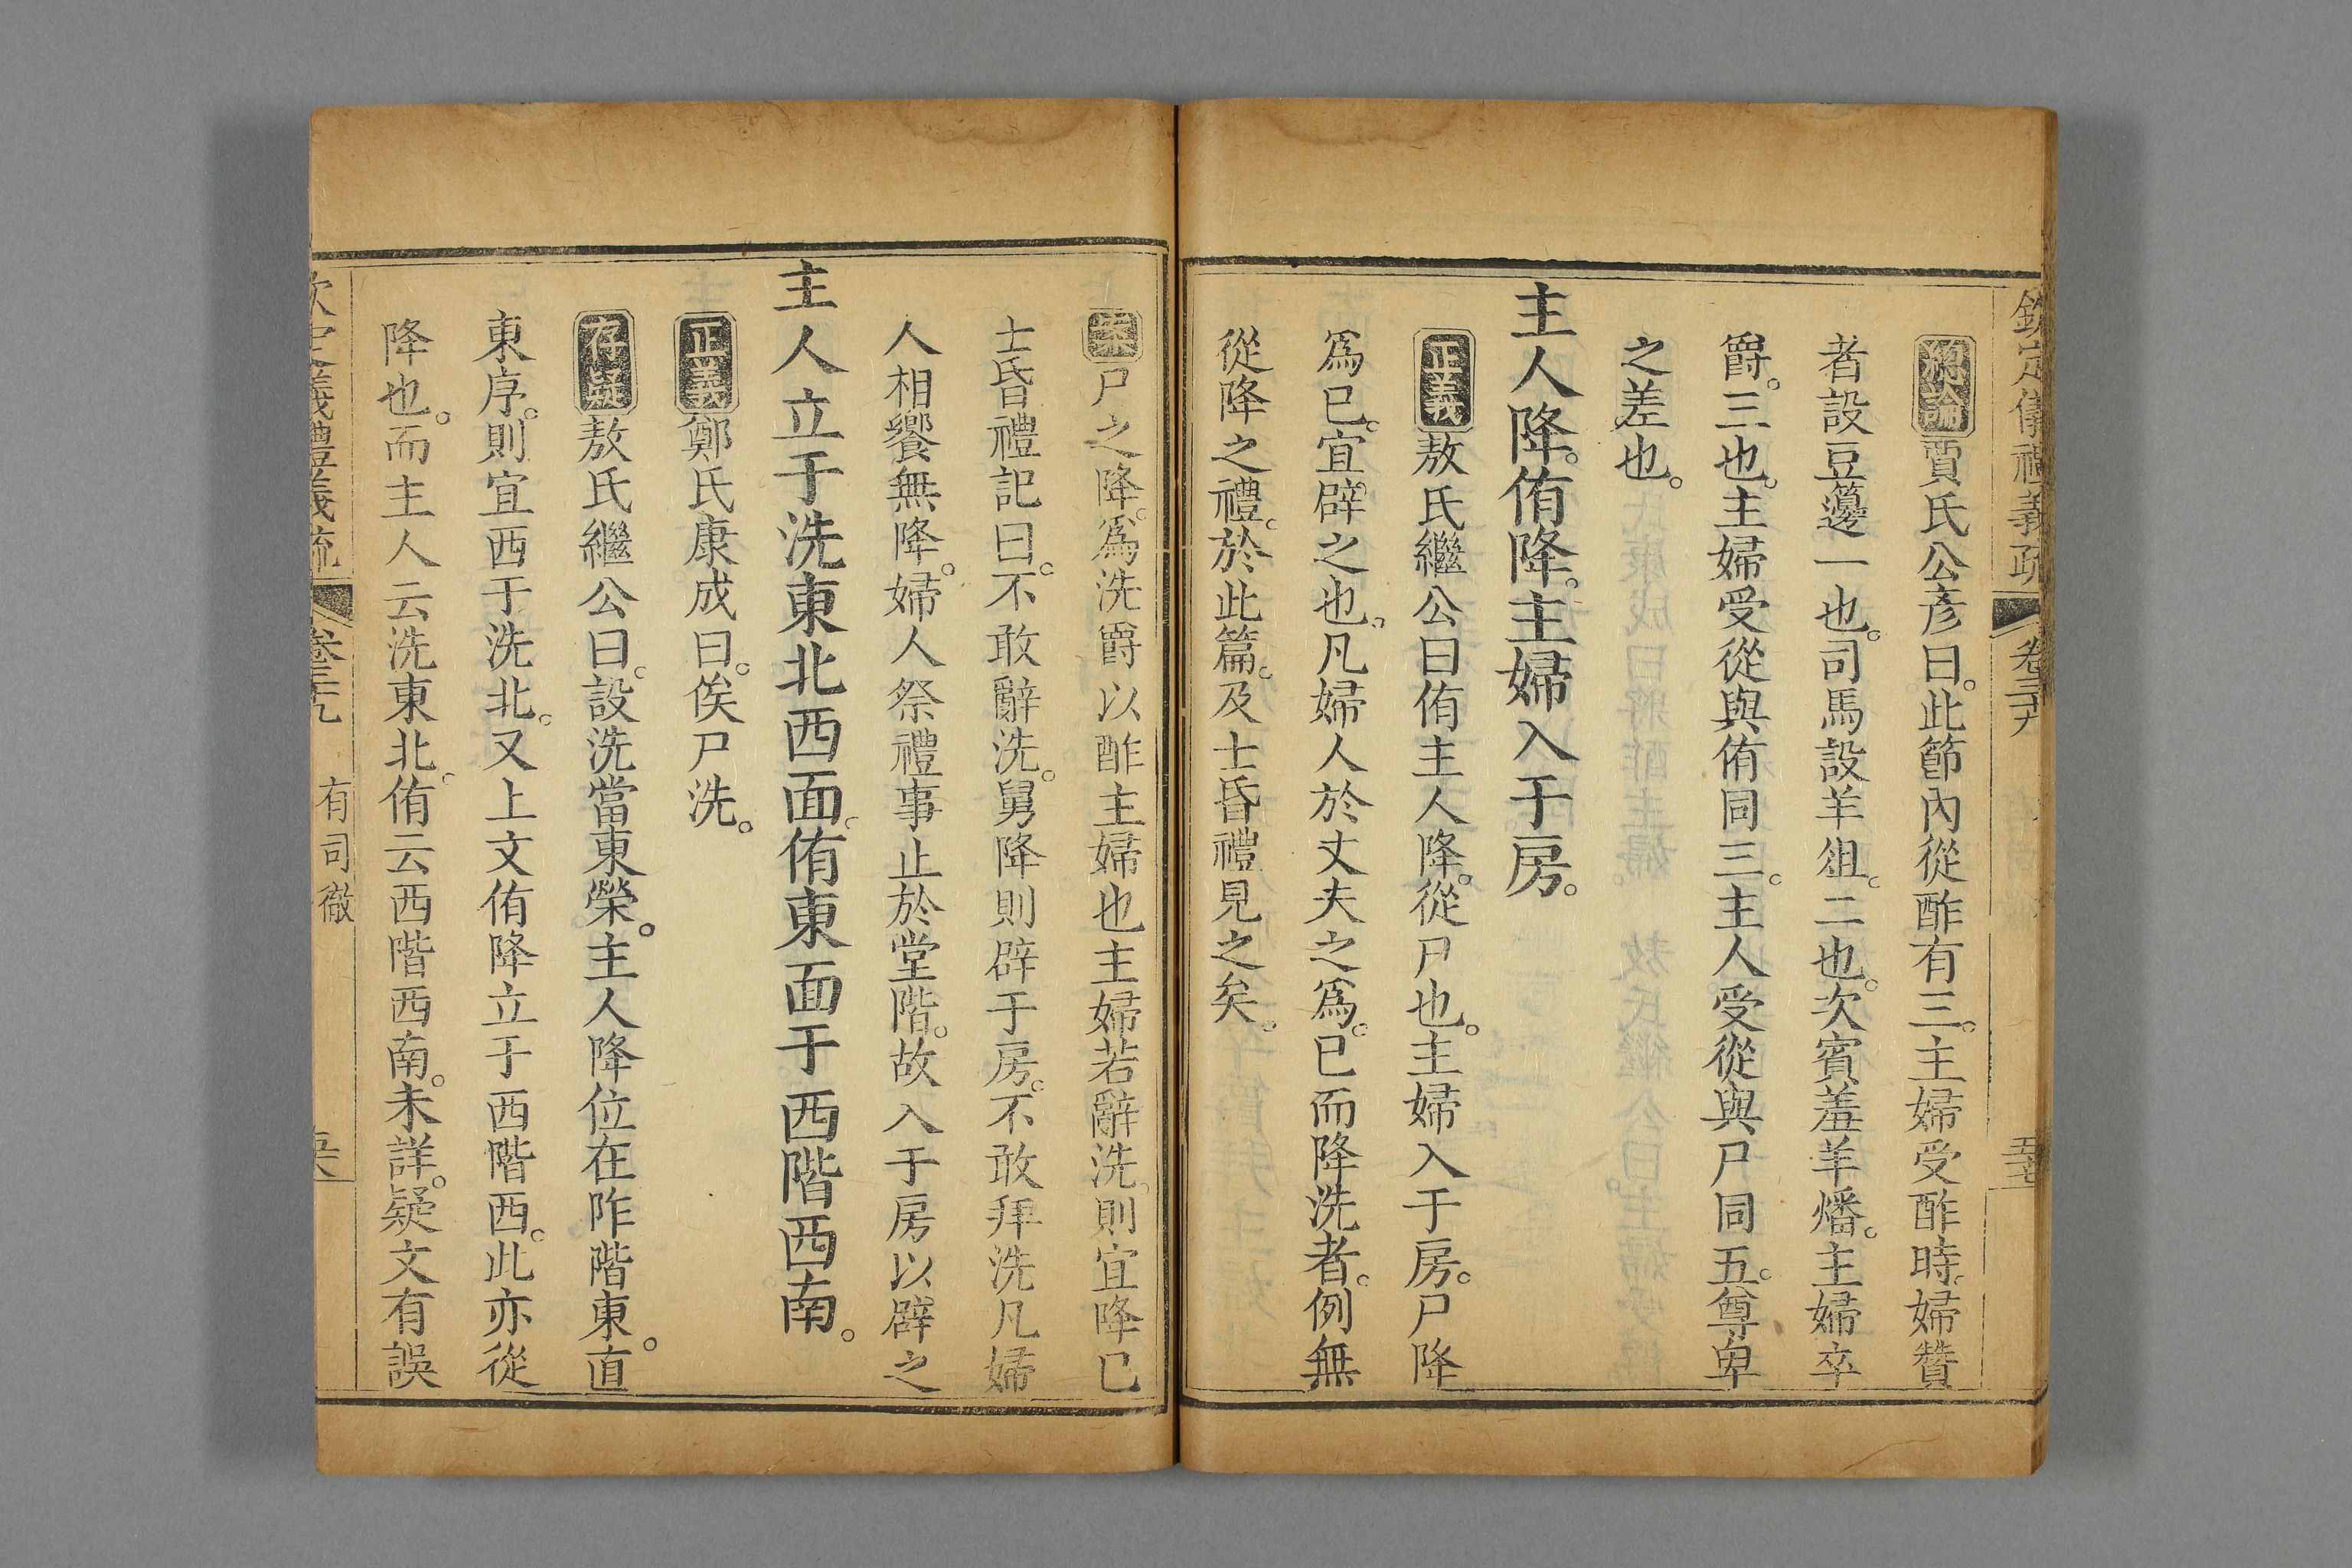 欽定儀禮義疏 卷三十九
總論賈氏公彥曰。此節內從酢有三。主婦受酢時。婦贊
者設豆籩一也。司馬設羊俎。二也。次賓羞羊燔。主婦卒
爵。三也。主婦受從與侑同三。主人受從與尸同五。尊卑
之差也。
主人降。侑降。主婦入于房。
正義敖氏繼公曰侑主人降。從尸也。主婦入于房。尸降
爲已。宜辟之也。凡婦人於丈夫之爲。已而降洗者。例無
從降之禮。於此篇。及士昏禮見之矣。
案尸之降。爲洗爵以酢主婦也主婦若辭洗。則宜降已
士昏禮記曰。不敢辭洗。舅降則辟于房。不敢拜洗凡婦
人相饗無降。婦人祭禮事止於堂階。故入于房以辟之
主人立于洗東北西面。侑東面于西階西南。
正義鄭氏康成曰。俟尸洗。
存疑敖氏繼公曰。設洗當東榮。主人降位在阼階東。直
東序。則宜西于洗北。又上文侑降立于西階西。此亦從
降也。而主人云洗東北。侑云西階西南。未詳。疑文有誤
義禮義疏 卷三十九 有司徹